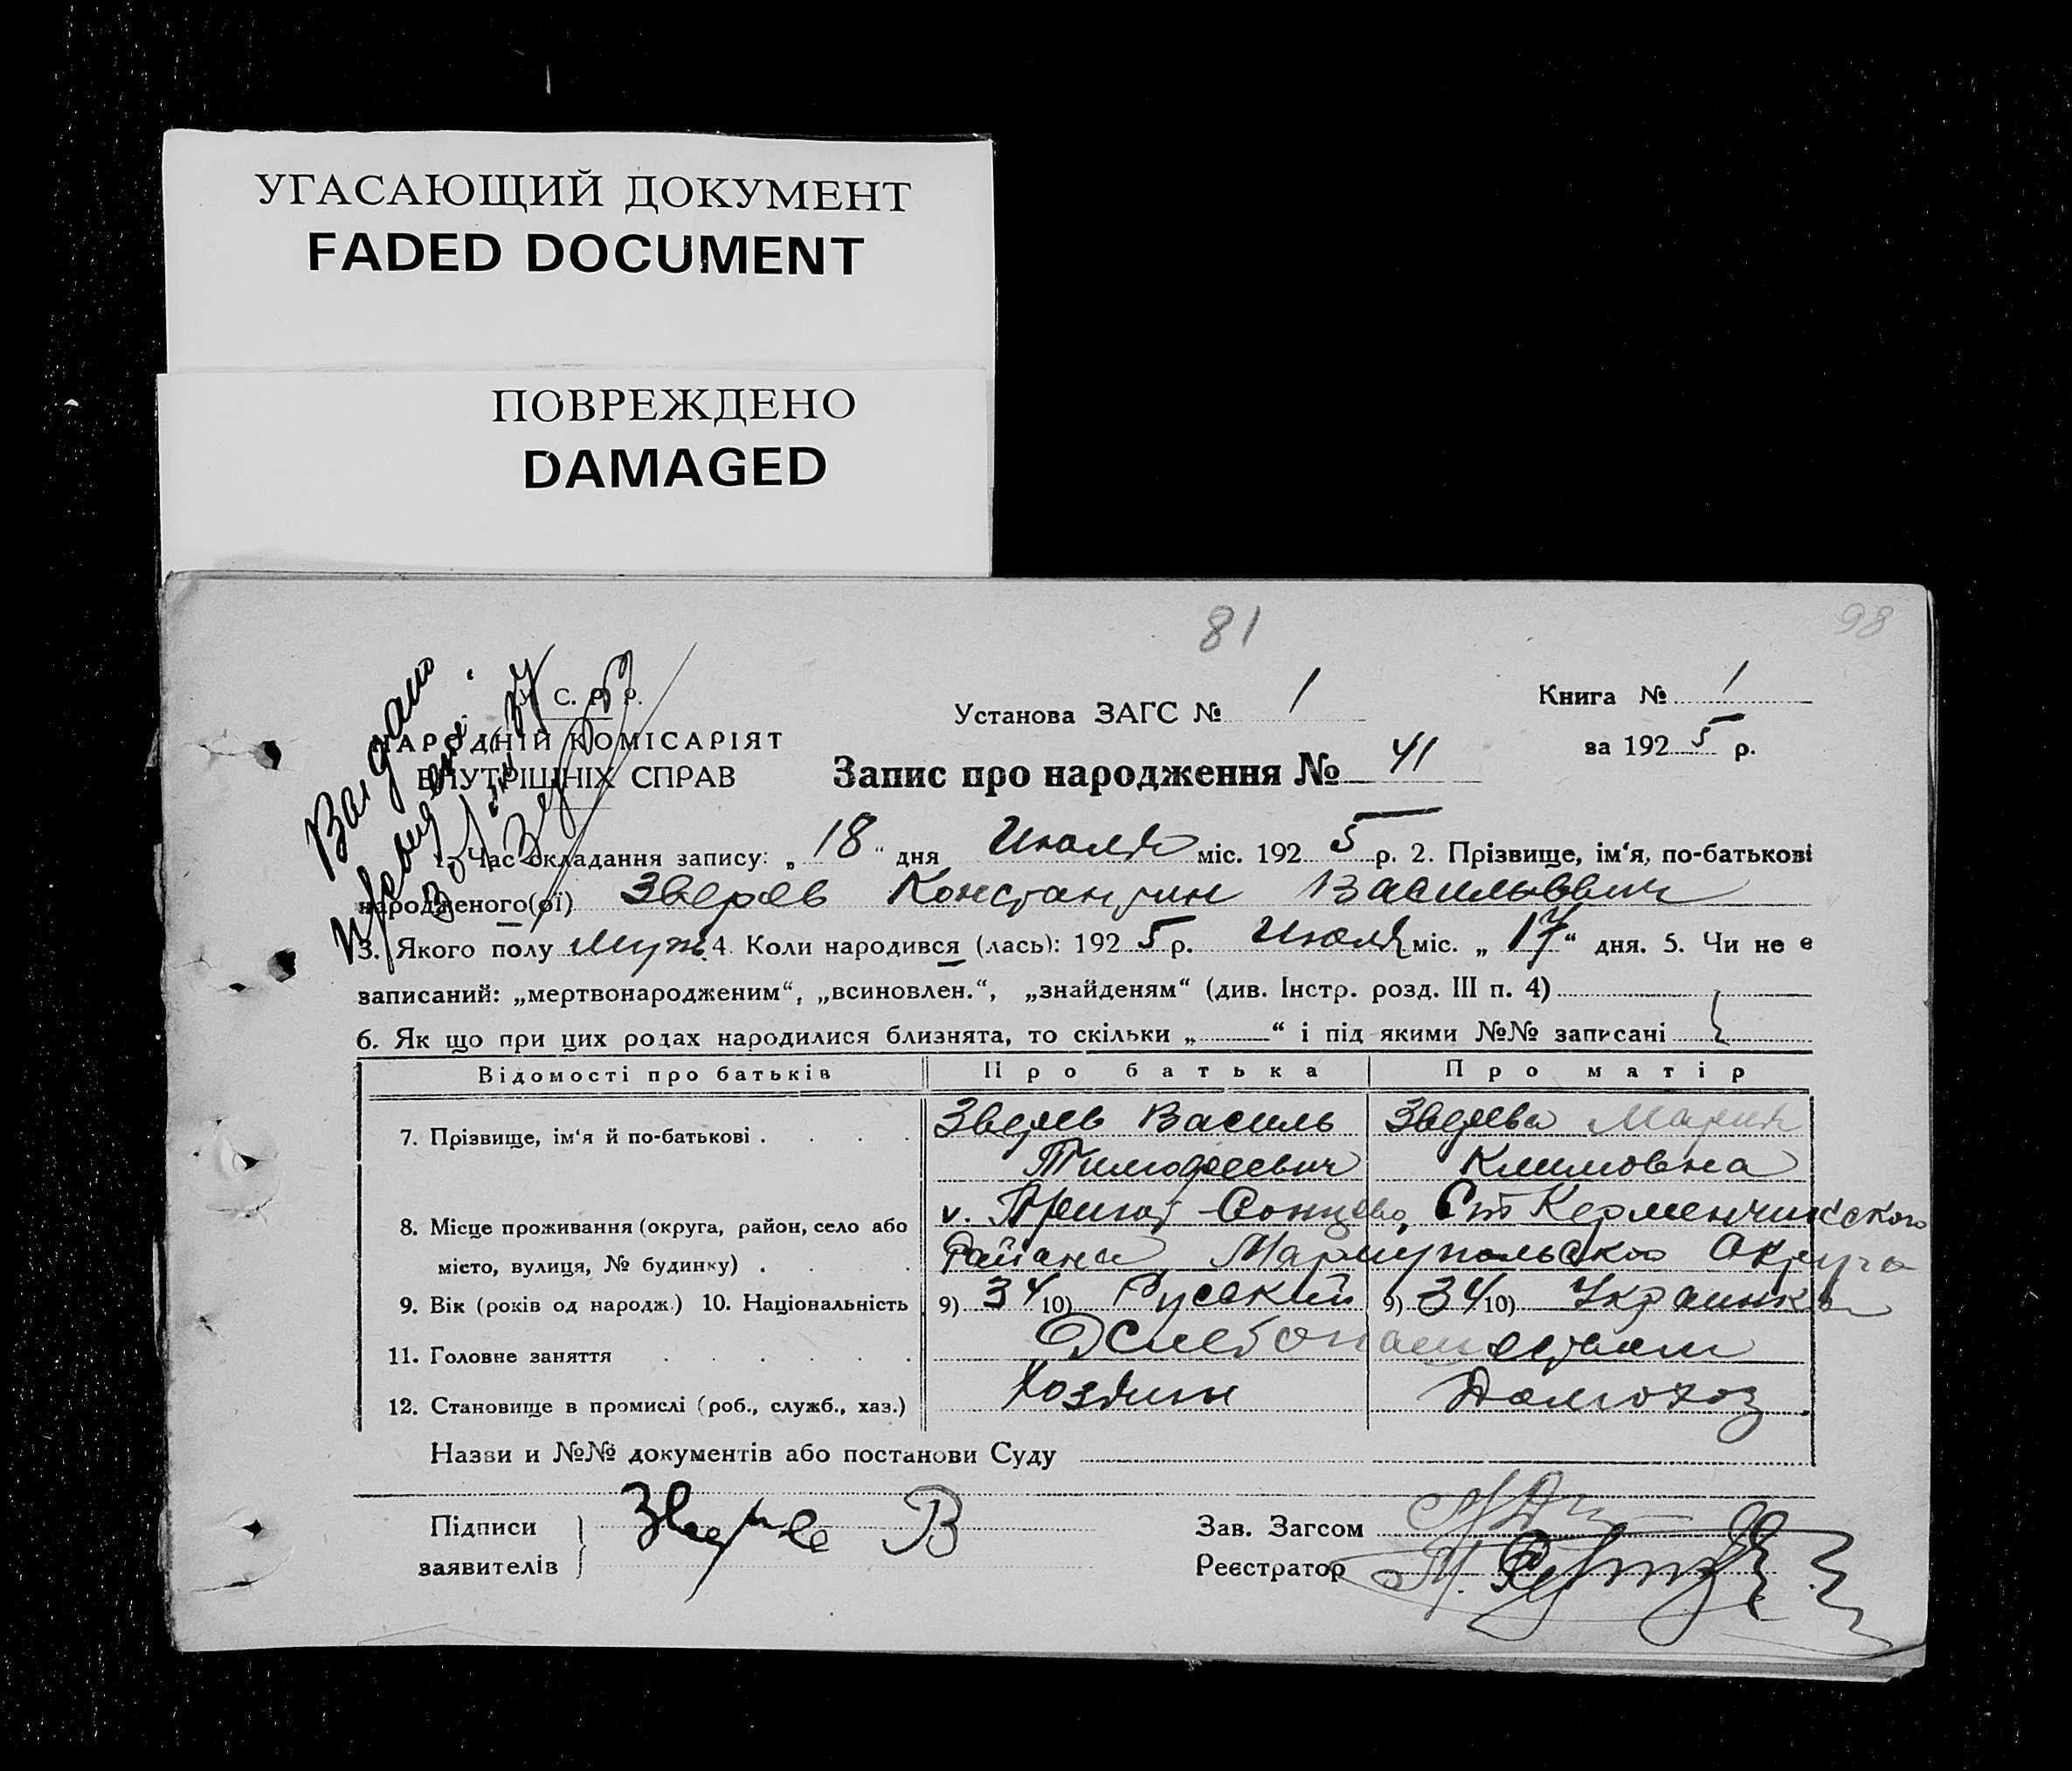 УГАСАЮЩИЙ ДОКУМЕНТ
FADED DOCUMENT
ПОВРЕЖДЕНО
DAMAGED
81
98
У. С. Р. Р.
НАРОДНІЙ КОМІСАРІЯТ
ВНУТРІШНІХ СПРАВ
Видано
Установа ЗАГС № 1
Книга № 1
за 1925 р.
Запис про народження № 41
1. Час складання запису: „18“ дня Июля міс. 1925 р. 2. Прізвище, ім‘я, по-батькові
народженого(ої) Зверев Константин Васильевич
3. Якого полу Муж. 4. Коли народився (лась): 1925 р. Июля міс. „17“ дня. 5. Чи не є
записаний: „мертвонародженим“, „всиновлен.“, „знайденям“ (див. Інстр. розд. III п. 4)
6. Як що при цих родах народилися близнята, то скільки „ “ і під якими №№ записані
Відомості про батьків Про батька Про матір
7. Прізвище, ім‘я й по-батькові . . . . Зверев Василь Зверева Мария
Тимофеевич Климовна
8. Місце проживання (округа, район, село або Ст Керменчикского
місто, вулиця, № будинку) . . . Района Мариупольского Округа
9. Вік (років од народж.) 10. Національність 9) 34 10) Русский 9) 34 10) Украинка
11. Головне заняття . . . . . . Хлебопашеством
12. Становище в промислі (роб., служб., хаз.) Хозяин Домохоз.
Назви и №№ документів або постанови Суду
Підписи
заявителів
Зверев В
Зав. Загсом
Реєстратор